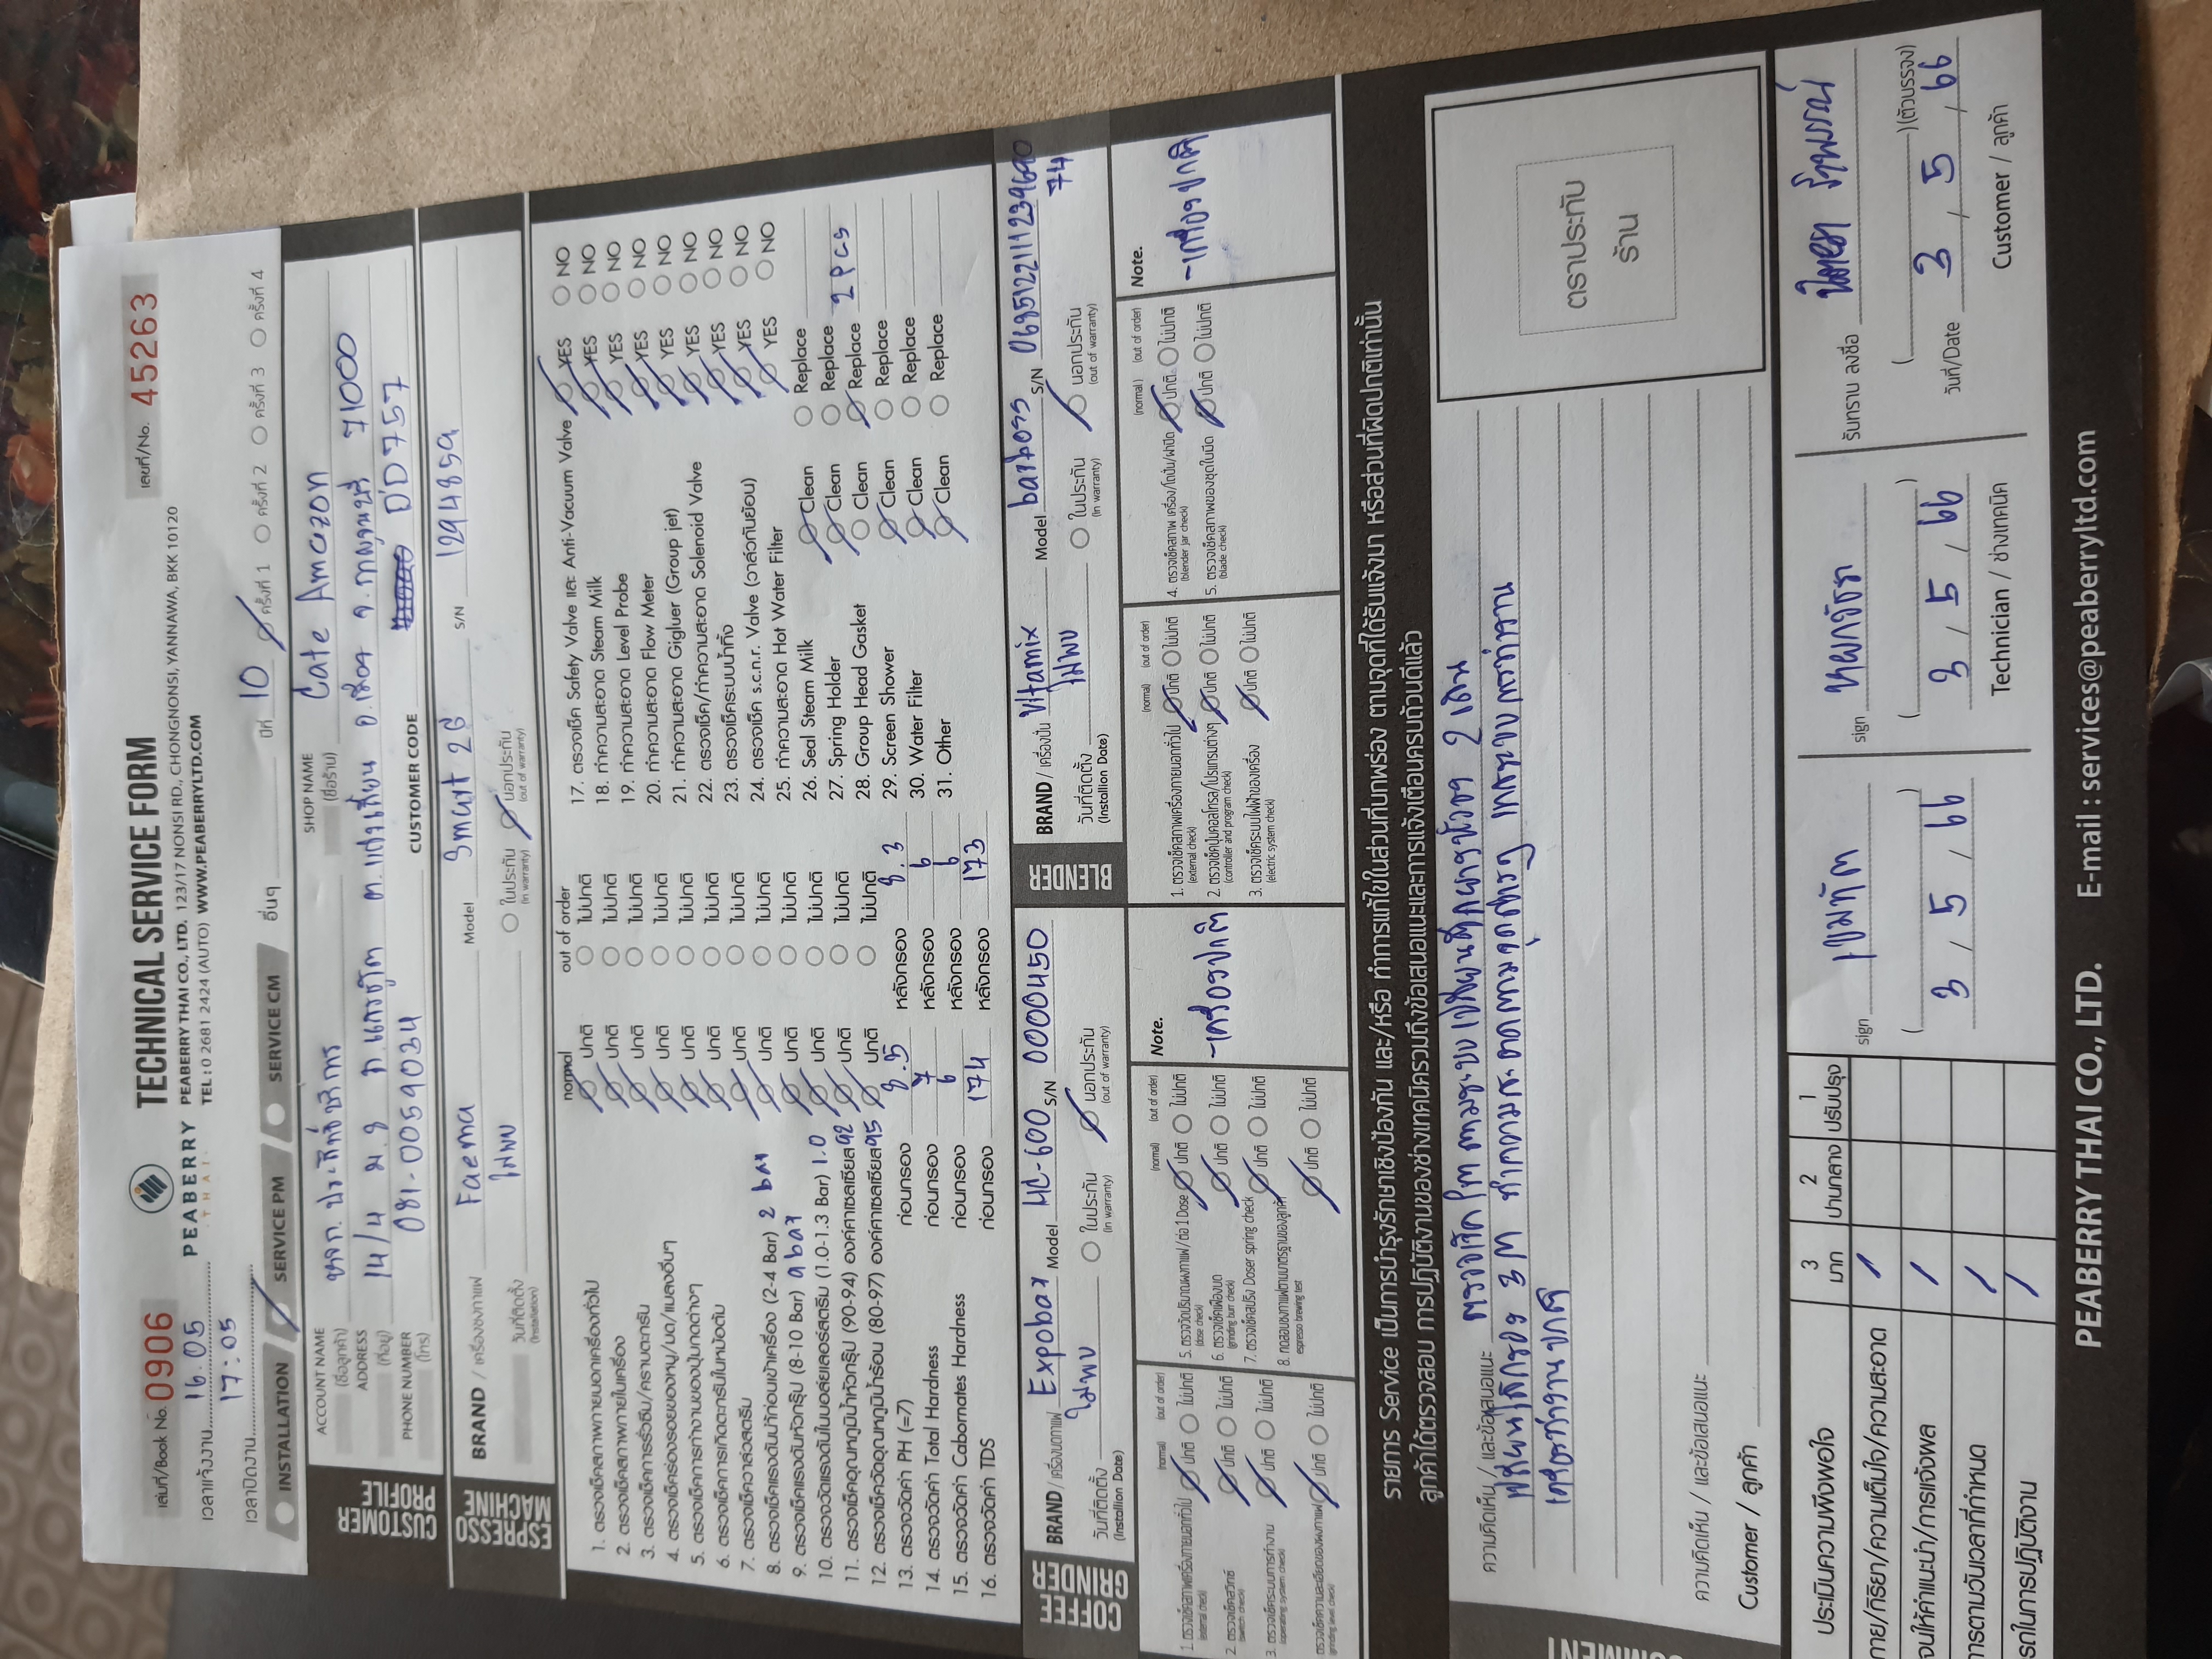 เล่มที่/Book No. 0906
PEABERRY
THAI
TECHNICAL SERVICE FORM
เลขที่/No. 45263
PEABERRY THAI CO., LTD. 123/17 NONSI RD., CHONGNONSI, YANNAWA, BKK 10120
TEL : 0 2681 2424 (AUTO) WWW.PEABERRYLTD.COM
เวลาแจ้งงาน 16.05
เวลาปิดงาน 17:05
INSTALLATION SERVICE PM SERVICE CM อื่นๆ ปีที่ 10 ครั้งที่ 1 ครั้งที่ 2 ครั้งที่ 3 ครั้งที่ 4
CUSTOMER PROFILE
ACCOUNT NAME (ชื่อลูกค้า) หจก. ประสิทธิ์บริการ SHOP NAME (ชื่อร้าน) Cafe Amazon
ADDRESS (ที่อยู่) 14/4 ม.8 ถ.แสงชูโต ต. อ.เมือง จ.กาญจนบุรี 71000
PHONE NUMBER (โทร) 081-0059034 CUSTOMER CODE DD757
ESPRESSO MACHINE
BRAND / เครื่องชงกาแฟ Faema Model Smart 2G S/N 1294859
วันที่ติดตั้ง (Installation) ไม่พบ ในประกัน (in warranty) นอกประกัน (out of warranty)
normal out of order
1. ตรวจเช็คสภาพภายนอกเครื่องทั่วไป ปกติ ไม่ปกติ
2. ตรวจเช็คสภาพภายในเครื่อง ปกติ ไม่ปกติ
3. ตรวจเช็คการรั่วซึม/คราบตะกรัน ปกติ ไม่ปกติ
4. ตรวจเช็คร่องรอยของหนู/มด/แมลงอื่นๆ ปกติ ไม่ปกติ
5. ตรวจเช็คการทำงานของปุ่มกดต่างๆ ปกติ ไม่ปกติ
6. ตรวจเช็คการเกิดตะกรันในหม้อต้ม ปกติ ไม่ปกติ
7. ตรวจเช็ควาล์วสตรีม ปกติ ไม่ปกติ
8. ตรวจเช็คแรงดันน้ำก่อนเข้าเครื่อง (2-4 Bar) 2 bar ปกติ ไม่ปกติ
9. ตรวจเช็คแรงดันหัวกรุ๊ป (8-10 Bar) 9 bar ปกติ ไม่ปกติ
10. ตรวจวัดแรงดันในบอล์ยเลอร์สตรีม (1.0-1.3 Bar) 1.0 ปกติ ไม่ปกติ
11. ตรวจเช็คอุณหภูมิน้ำหัวกรุ๊ป (90-94) องค์ศาเซลเซียส 92 ปกติ ไม่ปกติ
12. ตรวจเช็ควัดอุณหภูมิน้ำร้อน (80-97) องค์ศาเซลเซียส 95 ปกติ ไม่ปกติ
13. ตรวจวัดค่า PH (=7) ก่อนกรอง 8.5 หลังกรอง 8.3
14. ตรวจวัดค่า Total Hardness ก่อนกรอง 7 หลังกรอง 6
15. ตรวจวัดค่า Cabornates Hardness ก่อนกรอง 6 หลังกรอง 6
16. ตรวจวัดค่า TDS ก่อนกรอง 174 หลังกรอง 173
17. ตรวจเช็ค Safety Valve และ Anti-Vacuum Valve YES NO
18. ทำความสะอาด Steam Milk YES NO
19. ทำความสะอาด Level Probe YES NO
20. ทำความสะอาด Flow Meter YES NO
21. ทำความสะอาด Gigluer (Group jet) YES NO
22. ตรวจเช็ค/ทำความสะอาด Solenoid Valve YES NO
23. ตรวจเช็คระบบน้ำทิ้ง YES NO
24. ตรวจเช็ค s.c.n.r. Valve (วาล์วกันย้อน) YES NO
25. ทำความสะอาด Hot Water Filter YES NO
26. Seal Steam Milk Clean Replace
27. Spring Holder Clean Replace
28. Group Head Gasket Clean Replace 2 PCS
29. Screen Shower Clean Replace
30. Water Filter Clean Replace
31. Other Clean Replace
COFFEE GRINDER
BRAND / เครื่องบดกาแฟ Expobar Model MC-600 S/N 0000450
วันที่ติดตั้ง (Installion Date) ไม่พบ ในประกัน (in warranty) นอกประกัน (out of warranty)
BLENDER
BRAND / เครื่องปั่น Vitamix Model barboss S/N 068512211123969074
วันที่ติดตั้ง (Installion Date) ไม่พบ ในประกัน (in warranty) นอกประกัน (out of warranty)
(normal) (out of order)
1. ตรวจเช็คสภาพเครื่องภายนอกทั่วไป (external check) ปกติ ไม่ปกติ
2. ตรวจเช็คสวิทซ์ (switch check) ปกติ ไม่ปกติ
3. ตรวจเช็คระบบการทำงาน (operating system check) ปกติ ไม่ปกติ
ตรวจเช็คความละเอียดของผงกาแฟ (grinding level check) ปกติ ไม่ปกติ
(normal) (out of order)
5. ตรวจวัดปริมาณผงกาแฟ/ต่อ 1 Dose (dose check) ปกติ ไม่ปกติ
6. ตรวจเช็คเฟืองบด (grinding burr check) ปกติ ไม่ปกติ
7. ตรวจเช็คสปริง Doser spring check ปกติ ไม่ปกติ
8. ทดสอบชงกาแฟตามมาตรฐานของลูกค้า espresso brewing test ปกติ ไม่ปกติ
Note.
-เครื่องปกติ
(normal) (out of order)
1. ตรวจเช็คสภาพเครื่องภายนอกทั่วไป (external check) ปกติ ไม่ปกติ
2. ตรวจเช็คปุ่มคอลโทรล/โปรแกรมต่างๆ (controller and program check) ปกติ ไม่ปกติ
3. ตรวจเช็คระบบไฟฟ้าของเครื่อง (electric system check) ปกติ ไม่ปกติ
(normal) (out of order)
4. ตรวจเช็คสภาพ เครื่อง/โถปั่น/ฝาปิด (blender jar check) ปกติ ไม่ปกติ
5. ตรวจเช็คสภาพของชุดใบมีด (blade check) ปกติ ไม่ปกติ
Note.
-เครื่องปกติ
รายการ Service เป็นการบำรุงรักษาเชิงป้องกัน และ/หรือ ทำการแก้ไขในส่วนที่บกพร่อง ตามจุดที่ได้รับแจ้งมา หรือส่วนที่ผิดปกติเท่านั้น
ลูกค้าได้ตรวจสอบ การปฏิบัติงานของช่างเทคนิครวมถึงข้อเสนอแนะและการแจ้งเตือนครบถ้วนดีแล้ว
ความคิดเห็น / และข้อเสนอแนะ ตรวจเช็ค PM ตามระบบ เปลี่ยนซีลยางหัวชง 2 เส้น
เปลี่ยนไส้กรอง 3M ทำความสะอาดตามจุดต่างๆ เทสระบบการทำงาน
เครื่องทำงานปกติ
ตราประทับ
ร้าน
ความคิดเห็น / และข้อเสนอแนะ
Customer / ลูกค้า
ประเมินความพึงพอใจ 3 มาก 2 ปานกลาง 1 ปรับปรุง
กาย/กิริยา/ความเต็มใจ/ความสะอาด
จนให้คำแนะนำ/การแจ้งผล
การตามวันเวลาที่กำหนด
รถในการปฏิบัติงาน
sign เขมทัต
3 / 5 / 66
sign
3 / 5 / 66
Technician / ช่างเทคนิค
รับทราบ ลงชื่อ
(ตัวบรรจง)
วันที่/Date 3 / 5 / 66
Customer / ลูกค้า
PEABERRY THAI CO., LTD. E-mail : services@peaberryltd.com